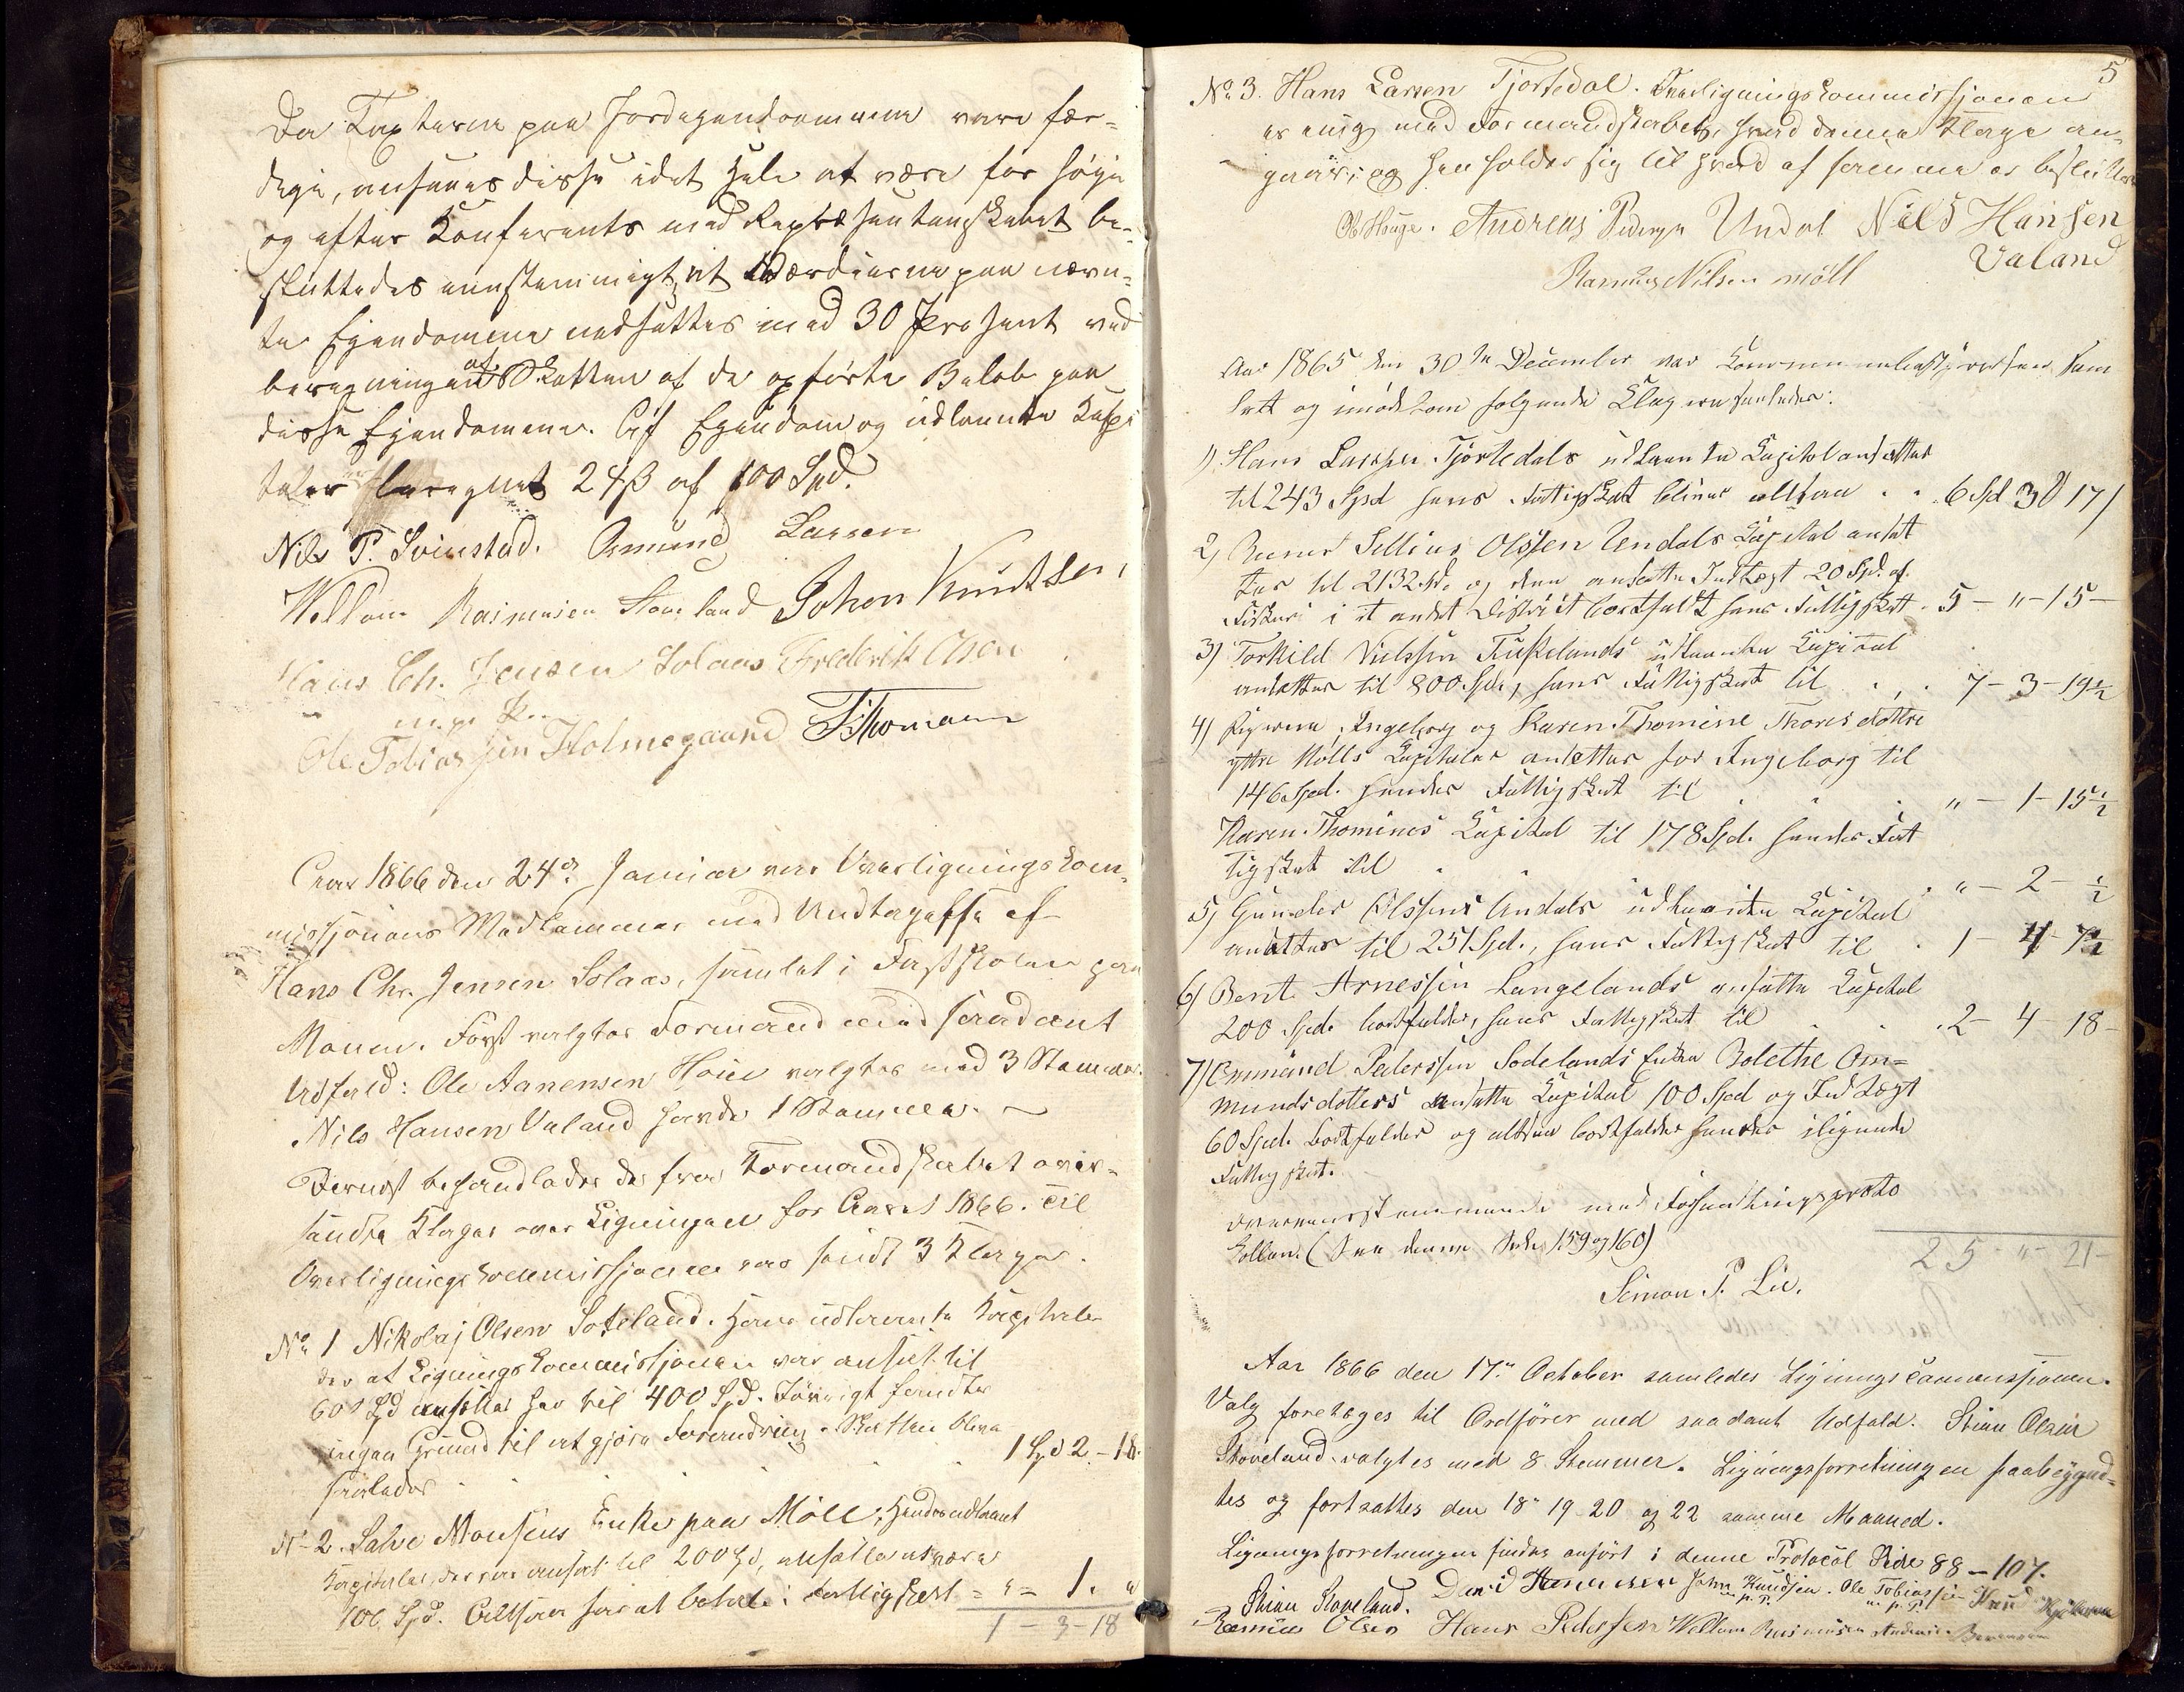 Da Taxterne paa Jordegendommene vare fær-
dige, ansaaes disse idet Hele at være for høye
og efter Konferents med Repræsentantskabet be-
sluttedes eenstemmigt, at Værdierne paa nævn-
te Ejendomme nedsattes med 30 Prosent ved
beregningen af Skatten af de opførte Beløb paa
disse Ejendomme. Af Egendom og udlaante Kapi
taler er beregnet 24 ß af 100 Spd.
Nils P. Svinstad. Osmund Larsen
Wellom Rasmusen Stoveland Johen Knudtsen,
Hans Ch. Jensen Solaas Frederik Olsen
m. p. P.
Ole Tobiassen Holmegaard T. Thomasen
Aar 1866 den 24de Januar var Overligningskom-
missjonens Medlemmer med Undtagelse af
Hans Chr. Jensen Solaas, samlet i Fastskolen paa
Mouen. Først valgtes Formand med saadant
Udfald: Ole Aanensen Høie valgtes med 3 Stemmer.
Nils Hansen Valand havde 1 Stemme. –
Dernest behandledes de fra Formandskabet over-
sendte Klager over Ligningen for Aaret 1866. Til
Overligningskommissjonen var sendt 3 Klager.
No 1 Nikolaj Olsen Søteland. Hans udlaante Kapitaler
der af Ligningskommissjonen var ansat til
600 Spd ansættes her til 400 Spd. Iøvrigt fandtes
ingen Grund til at gjøre Forandring. Skatten bliver
saaledes . . . . 1 Spd 2 - 18.
No 2. Salve Monsens Enke paa Möll; Hendes udlaant
Kapitaler, der var ansat til 200 Spd, ansættes at være
100 Spd. Altsaa har at betale i Fattigskat = " = 1. "
1 - 3 - 18
5
No 3. Hans Larsen Tjortedal. Overligningskommissjonen
er enig med Formandskabet, hvad denne Klage an-
gaar, og henholder sig til hvad af samme er besluttet
O Hauge. Andreas Pedersen Undal Nils Hansen
Valand
Rasmus Nilsen möll
Aar 1865 den 30te December var Kommunebestyrelsen sam
let og imødekom følgende Klager saaledes:
1) Hans Larssen Tjørtedals udlaante Kapital ansættes
til 243 Spd hans Fattigskat bliver altsaa . . 6 Spd 3 17
2) Sellius Olssen Undals Kapital ansæt
tes til 2132 Spd. og den ansatte Indtægt 20 Spd. af
Fiskeri i et andet District bortfaldt hans Fattigskat . 5 - " - 15 -
3) Torkild Nielssen udlaante Kapital
ansættes til 800 Spd., hans Fattigskat til . . . 7 - 3 - 19½
4) Pigerne Ingeborg og Karen Thomine Thorsdottre
yttre Mølls Kapitaler ansættes for Ingeborg til
146 Spd. hendes Fattigskat til . . . " - 1 - 15½
Karen Thomines Kapital til 178 Spd. hendes Fat
tigskat til . . . " - 2 - ½
5) Gunder Olssens Undals udlaante Kapital
ansættes til 251 Spd., hans Fattigskat til . 1 - 4 - 7½
6) Bent Arnessen Langelands ansatte Kapital
200 Spd. bortfalder, hans Fattigskat til . . . 2 - 4 - 18 -
7) Ommund Pederssen Sodelands Enke Bolethe Om=
mundsdotters ansatte Kapital 100 Spd og Indtægt
60 Spd. bortfalder og altsaa bortfalder hendes ilignede
Fattigskat.
overeensstemmende med Forhandlingsproto
kollen. (See denne Side 159 og 160)
25 " - 21 -
Simon P. Lie.
Aar 1866 den 17de October samledes Ligningscommissionen.
Valg foretoges til Ordfører med saadant Udfald. Stian Olsen
Stoveland valgtes med 8 Stemmer. Ligningsforretningen paabegynd-
tes og fortsattes den 18de 19. 20 og 22 samme Maaned.
Ligningsforretningen findes anført i denne Protocol Side 88 – 107.
Stian Stoveland. David John Knudsen. Ole Tobiassen Knud
m. p. P. m. p. P.
Rasmus Olsen Hans Pederssen Wellom Rasmusen